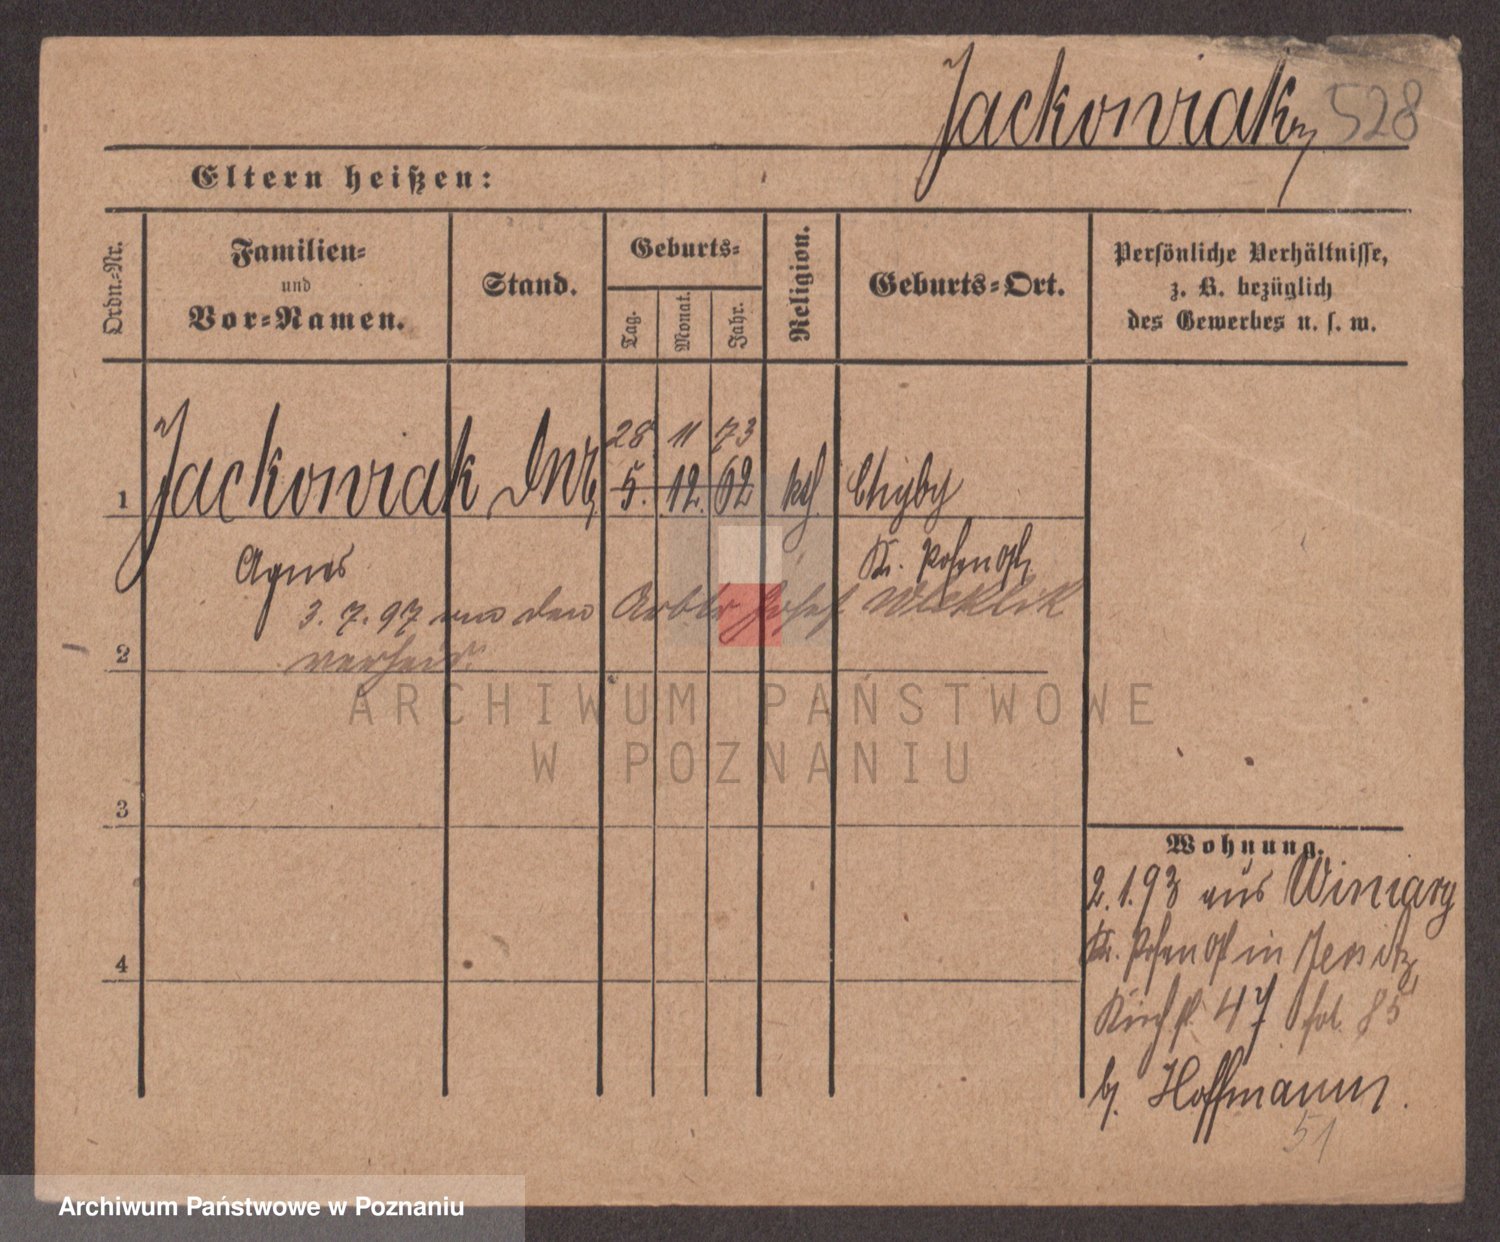 Jackowiak 528
Eltern heißen:
Ordn.-Nr.
Familien-
und
Vor-Namen.
Stand.
Geburts-
Tag.
Monat.
Jahr.
Religion.
Geburts-Ort.
Persönliche Verhältnisse,
z. B. bezüglich
des Gewerbes u. s. w.
28 11 73
1 Jackowiak 5. 12. 62 kth Chyby
Agnes Kr. Posen Ost
3. 7. 97 an den Arbtr Josef Weklik
2 verheir.
ARCHIWUM PAŃSTWOWE
W POZNANIU
3
4
Wohnung.
2.1.93 aus Winiary
Kr. Posen Ost in Jersitz
47 fol. 85
b. Hoffmann.
51
Archiwum Państwowe w Poznaniu